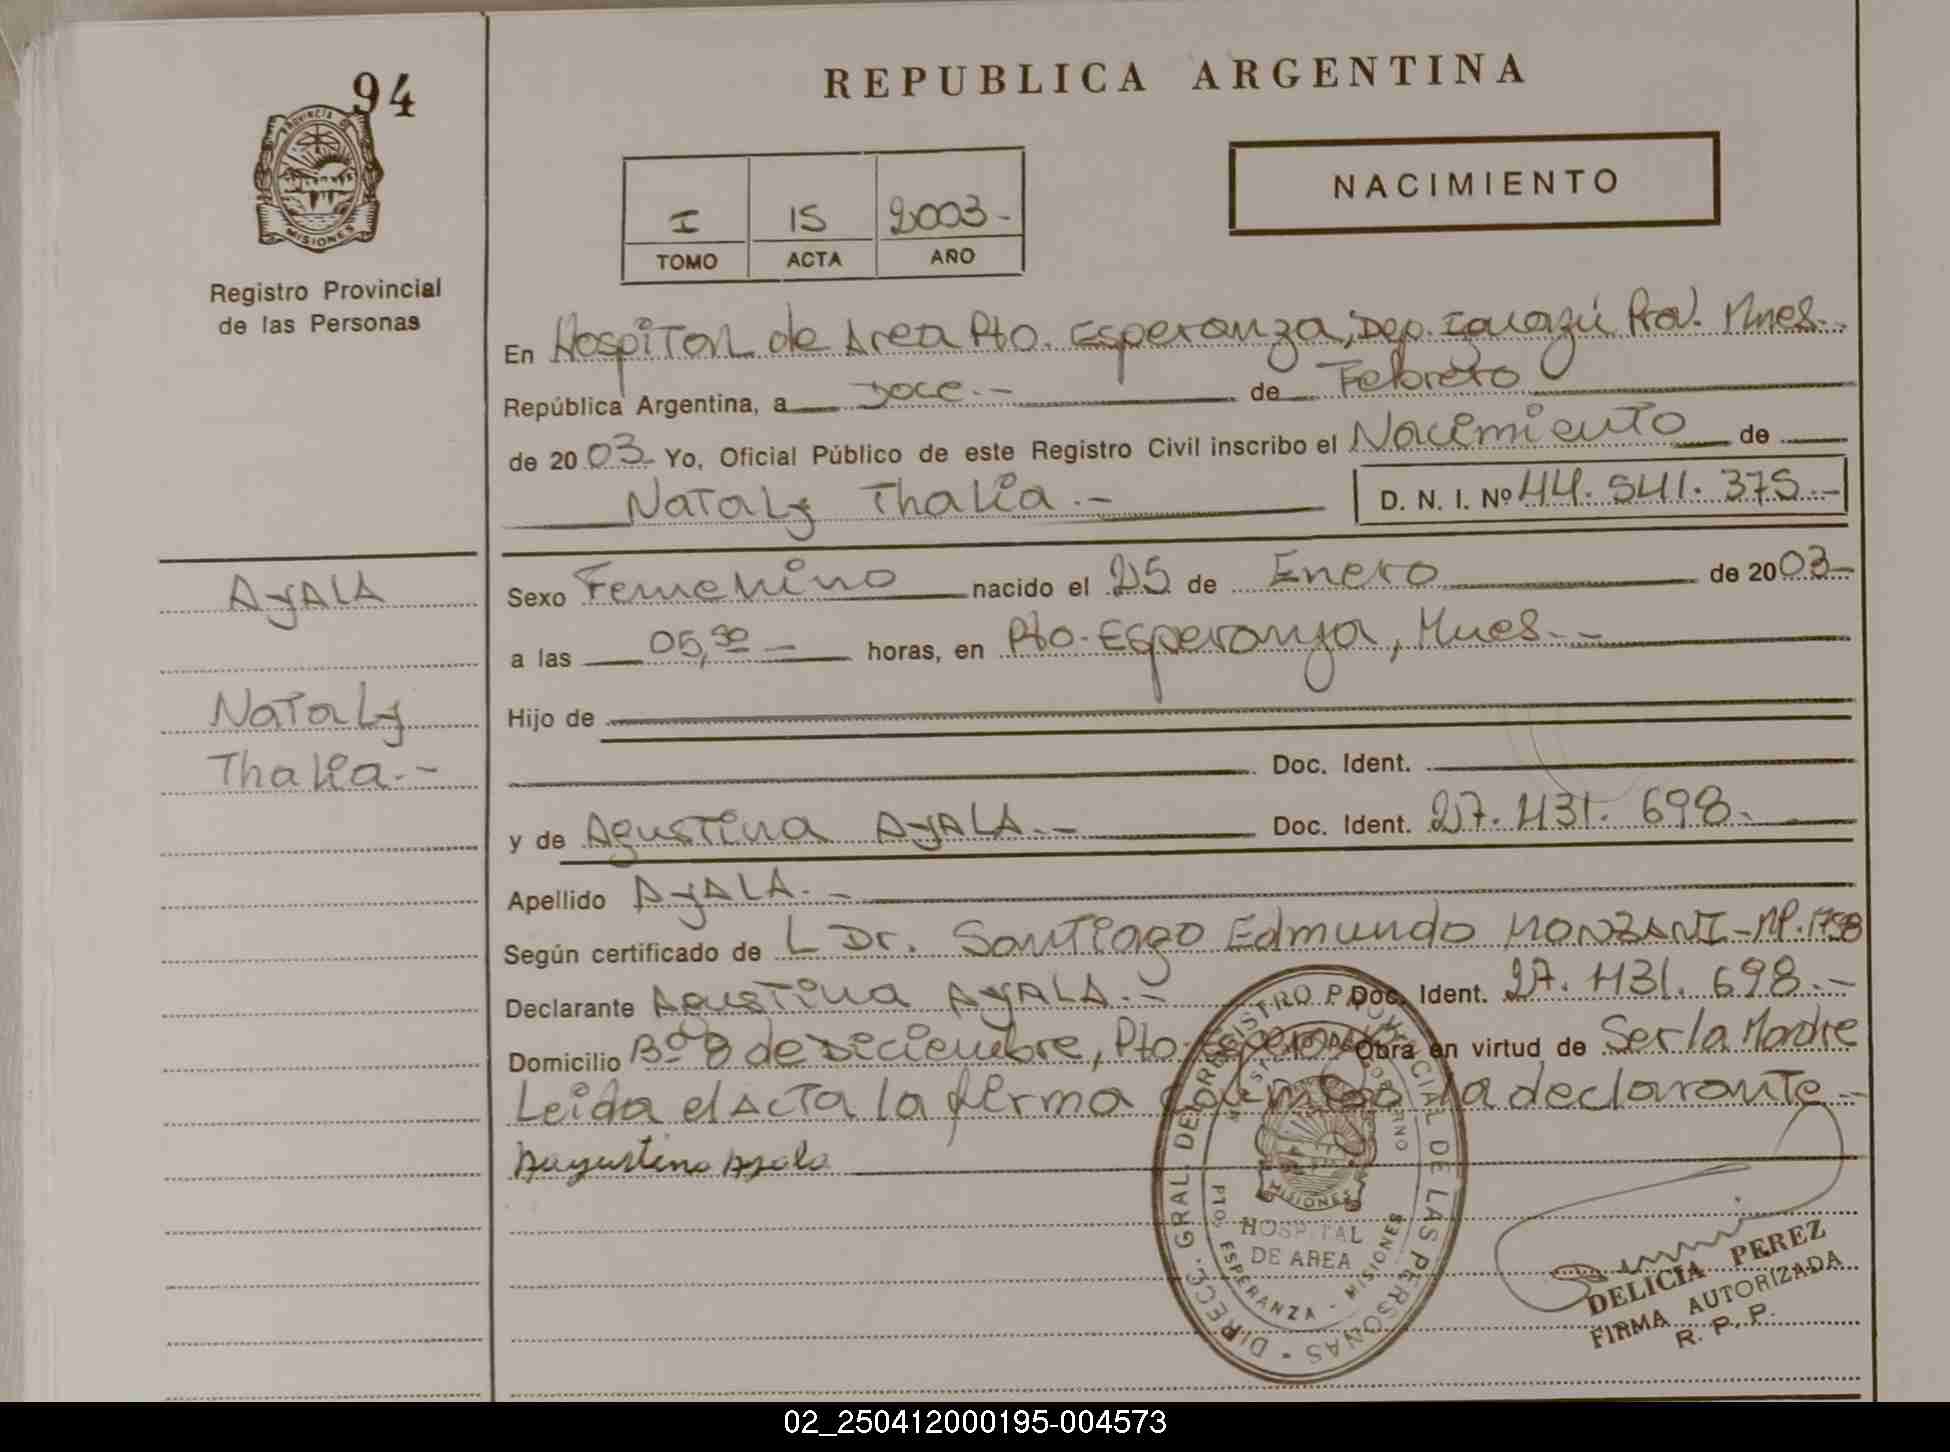 94
PROVINCIA DE
MISIONES
Registro Provincial
de las Personas
REPUBLICA ARGENTINA
I 15 2003-
TOMO ACTA AÑO
NACIMIENTO
En Hospital de Area Pto. Esperanza, Dep. Iguazú Prov. Mnes.-
República Argentina, a Doce.- de Febrero
de 2003 Yo, Oficial Público de este Registro Civil inscribo el Nacimiento de
Nataly Thalia.- D. N. I. Nº 44.541.375.-
AYALA
Nataly
Thalia.-
Sexo Femenino nacido el 25 de Enero de 2003-
a las 05,30 - horas, en Pto. Esperanza, Mnes.-
Hijo de
Doc. Ident.
y de Agustina AYALA.- Doc. Ident. 27.431.698.
Apellido AYALA.-
Según certificado de L Dr. Santiago Edmundo MONZANI-MP.1798
Declarante Agustina AYALA.- Doc. Ident. 27.431.698.-
Domicilio Bº 8 de Diciembre, Pto. Obra en virtud de Ser la Madre
Leida el acta la firma conmigo la declarante-
Aagustina Ayala
DIRECC. GRAL. DE REGISTRO PROVINCIAL DE LAS PERSONAS
MISIONES
HOSPITAL
DE AREA
PTO. ESPERANZA - MISIONES
DELICIA PEREZ
FIRMA AUTORIZADA
R. P. P.
02_250412000195-004573